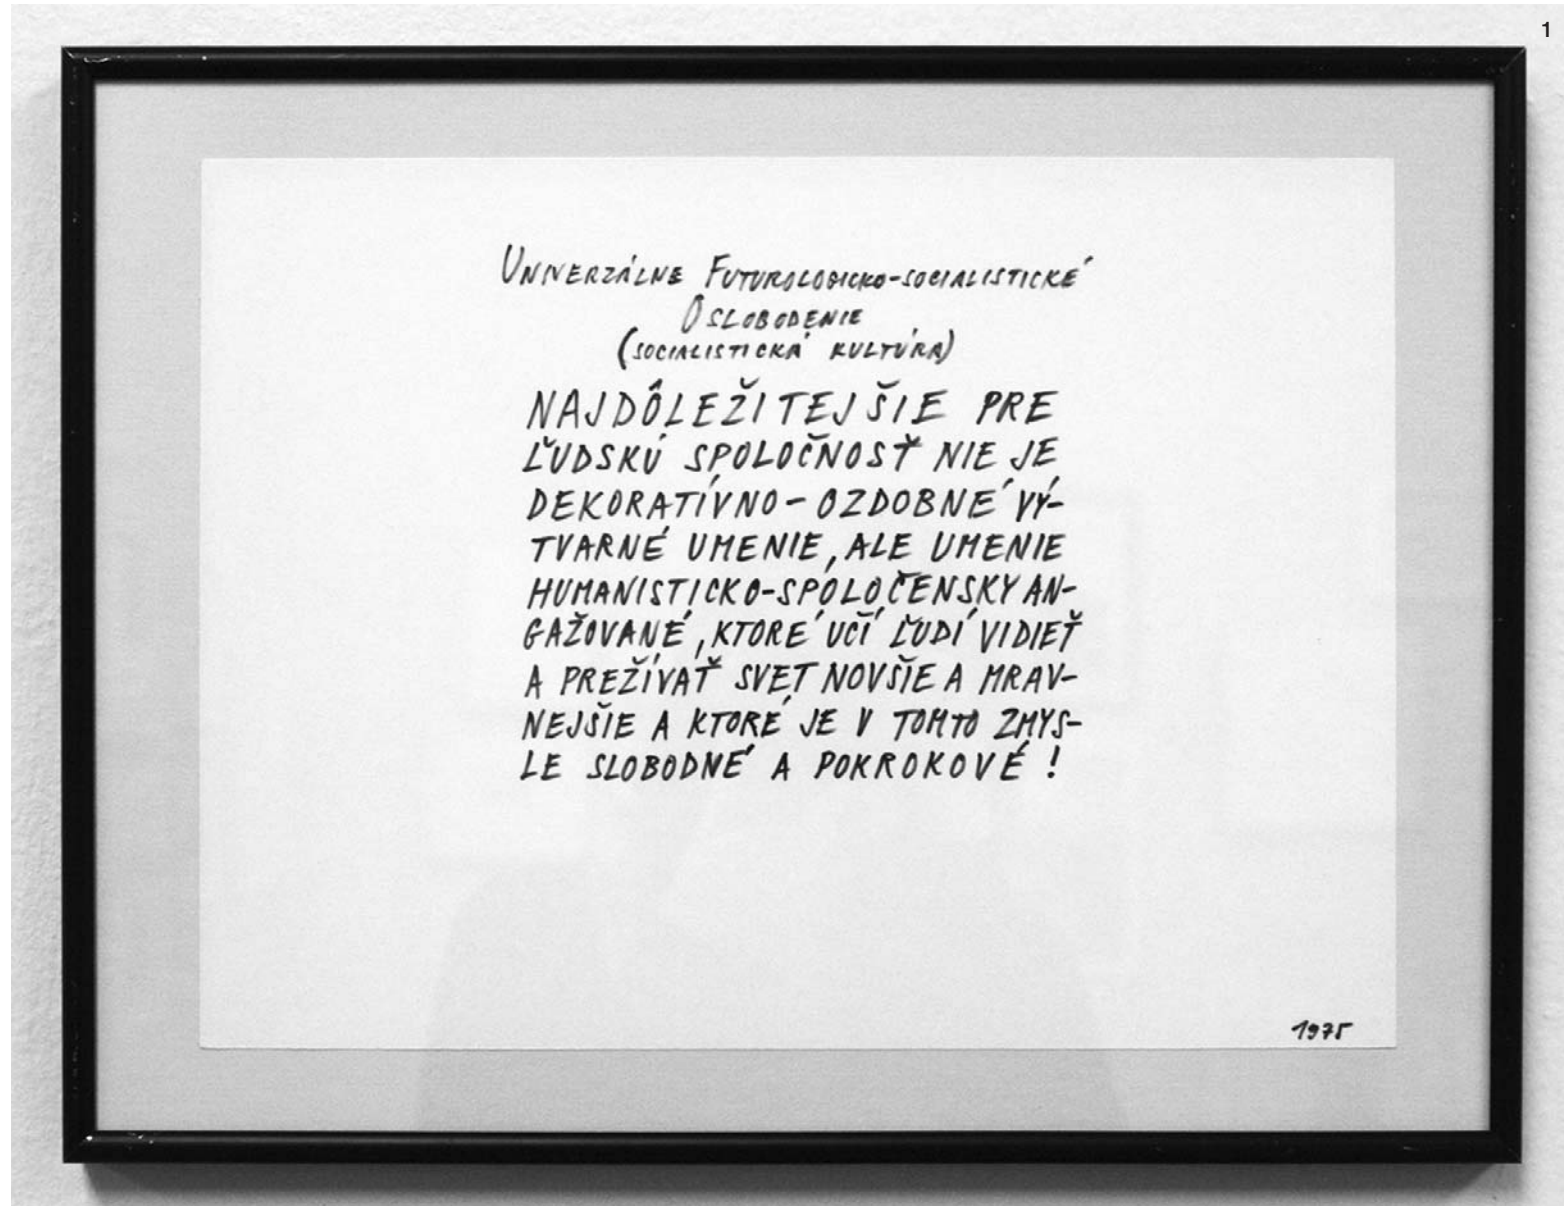 1
Univerzálne Futurologicko-socialistické
Oslobodenie
(socialistická kultúra)
NAJDÔLEŽITEJŠIE PRE
ĽUDSKÚ SPOLOČNOSŤ NIE JE
DEKORATÍVNO-OZDOBNÉ VÝ-
TVARNÉ UMENIE, ALE UMENIE
HUMANISTICKO-SPOLOČENSKY AN-
GAŽOVANÉ, KTORÉ UČÍ ĽUDÍ VIDIEŤ
A PREŽÍVAŤ SVET NOVŠIE A MRAV-
NEJŠIE A KTORÉ JE V TOMTO ZMYS-
LE SLOBODNÉ A POKROKOVÉ!
1975